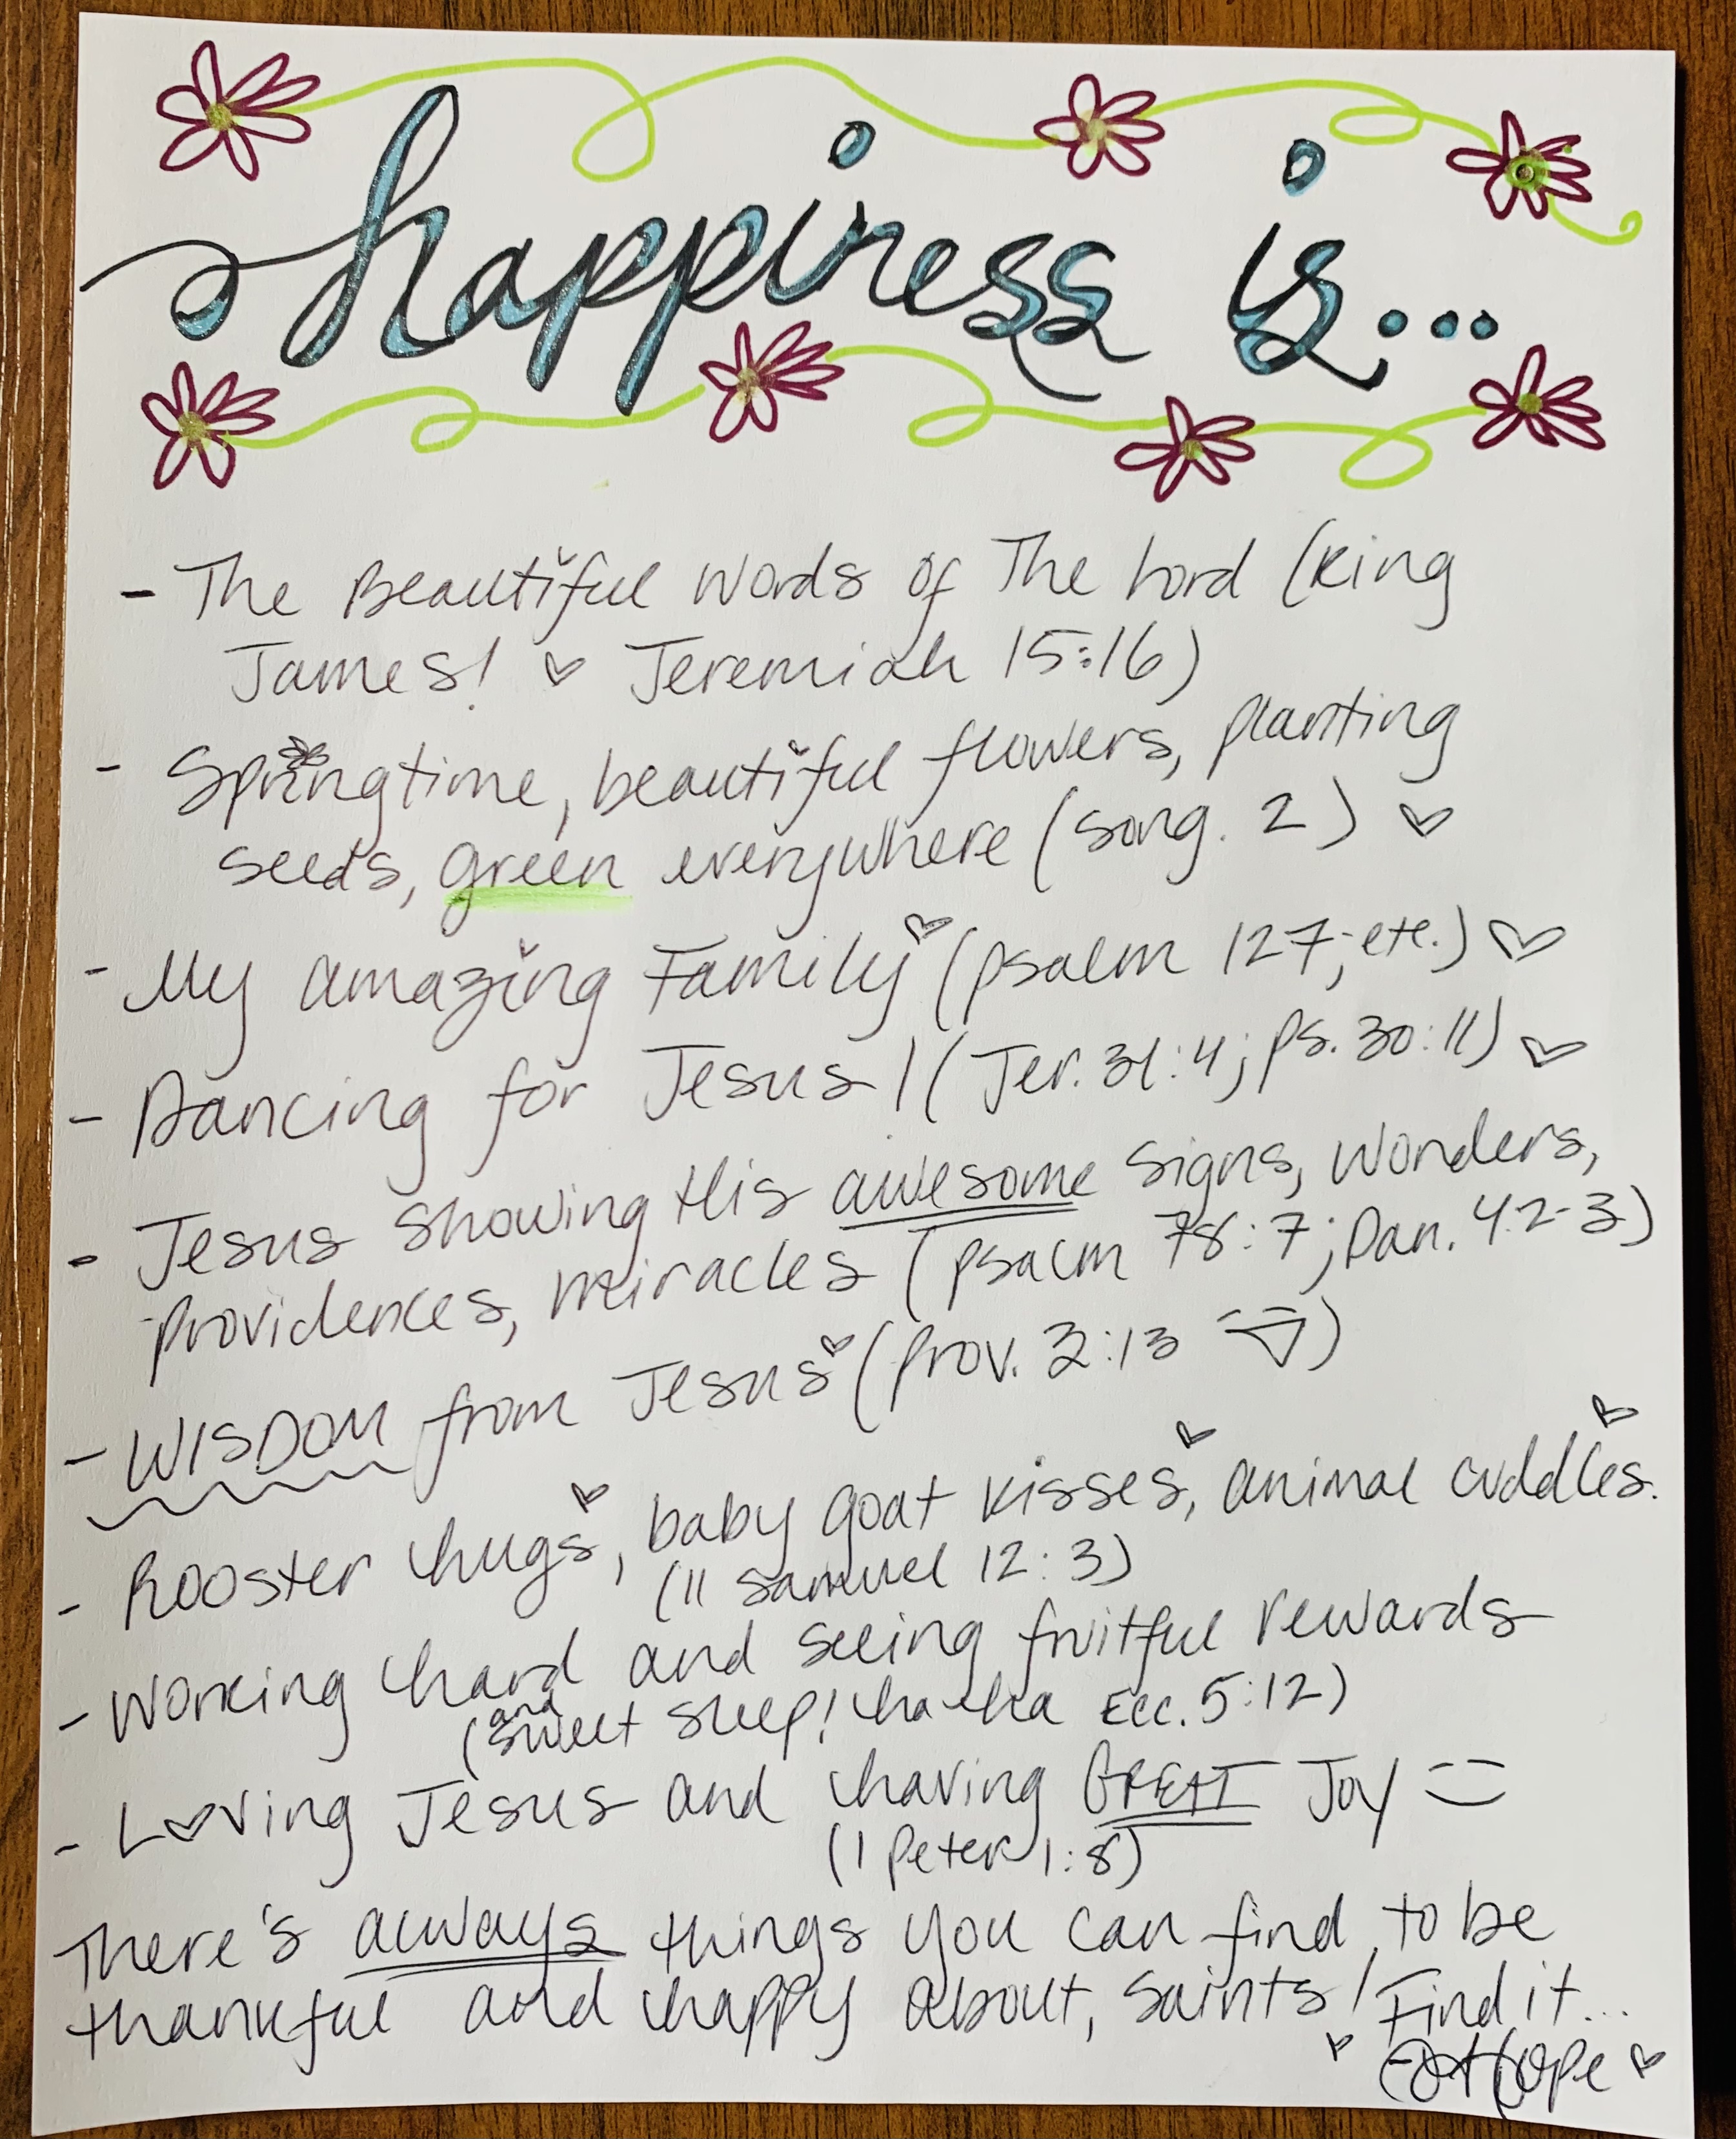 happiness is...
- The Beautiful Words of The Lord (King
James! ♡ Jeremiah 15:16)
- Springtime, beautiful flowers, planting
seeds, green everywhere (song. 2) ♡
- My amazing Family ♡ (psalm 127; etc.) ♡
- Dancing for Jesus! (Jer. 31:4; ps. 30:11) ♡
- Jesus showing His awesome signs, wonders,
providences, miracles (psalm 78:7; Dan. 4:2-3)
- WISDOM from Jesus ♡ (Prov. 3:13 =))
- Rooster hugs ♡, baby goat kisses ♡, animal cuddles. ♡
(II Samuel 12:3)
- Working hard and seeing fruitful rewards
(and sweet sleep! ha-ha Ecc. 5:12)
- Loving Jesus and having GREAT Joy =)
(1 Peter 1:8)
There's always things you can find to be
thankful and happy about, saints! Find it...
♡ Hope ♡